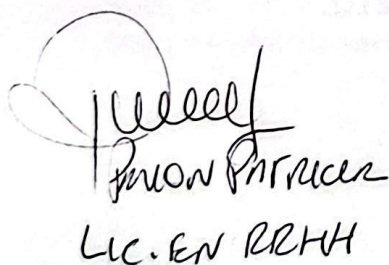 PAVON PATRICIA
LIC. EN RRHH